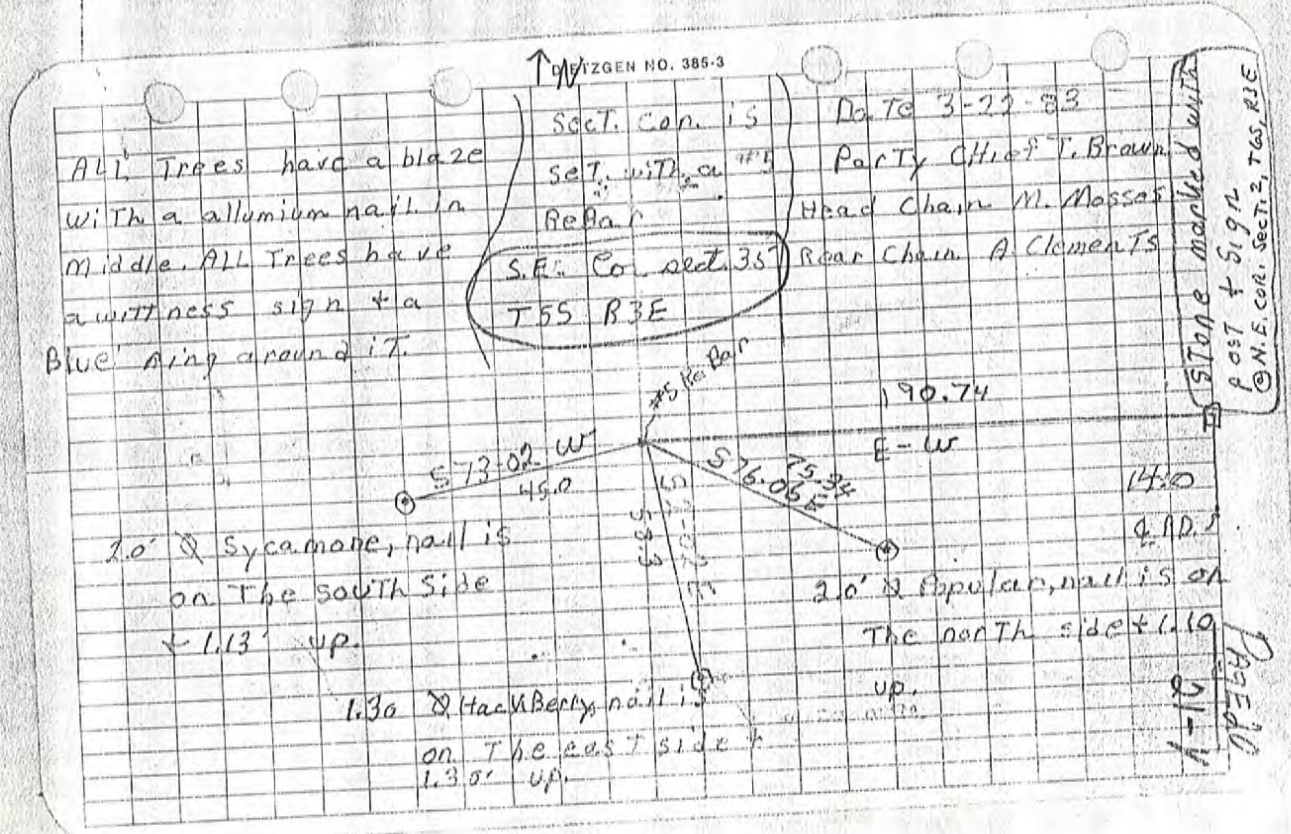 DIETZGEN NO. 385-3
N
ALL Trees have a blaze
with a allumium nail in
middle. ALL Trees have
a wittness sign + a
Blue ring around it.
Sect. Cor. is
set with a #5
ReBar
S.E. Cor sect. 35
T5S R3E
Date 3-22-83
Party Chief T. Brown
Head Chain M. Mosses
Rear Chain A. Clements
Stone marked with
Post + Sign
@ N.E. Cor. Sect. 2, T6S, R3E
#5 Re Bar
190.74
E-W
S 73-02 W
45.0
S 76-06 E
75.94
58.3
14.0
¢ RD.
2.0' Sycamore, nail is
on The south Side
+ 1.13' up.
1.30 HackBerry, nail is
on The east side +
1.30' up.
2.0' Popular, nail is on
The north side + 1.10
up.
V-21